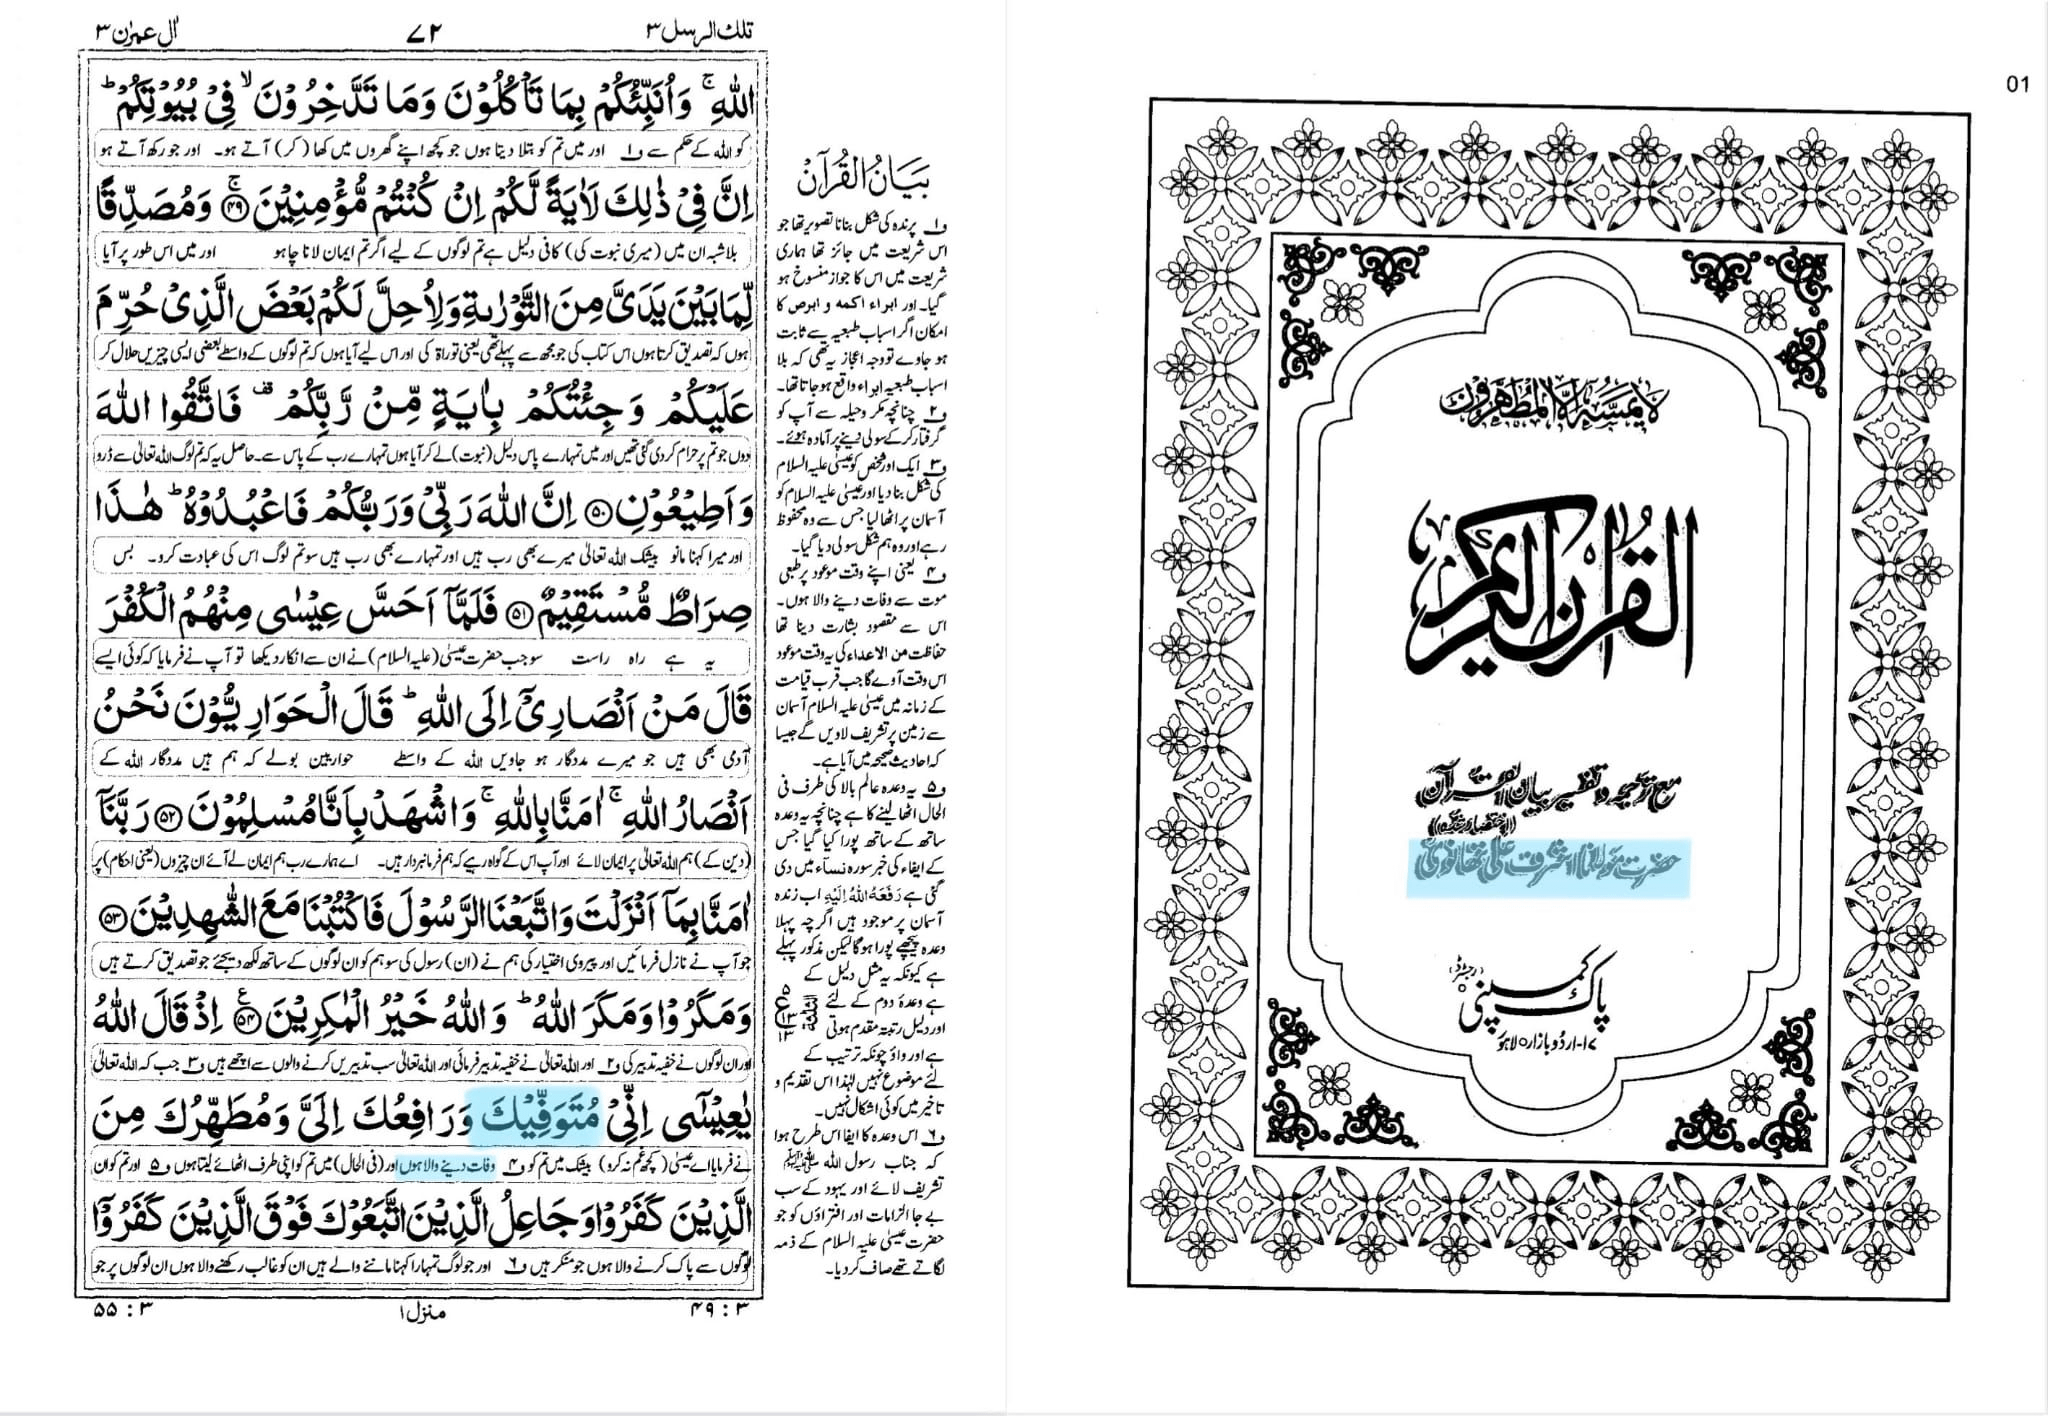 01
لا يمسه الا المطهرون
القرآن الکریم
مع ترجمہ و تفسیر بیان القرآن
(اختصار شدہ)
حضرت مولانا اشرف علی تھانوی
پاک کمپنی (رجسٹرڈ)
۱۷-اردو بازار ○ لاہور
تلك الرسل ٣
٧٢
اٰل عمرٰن ٣
اللّٰهِ ۚ وَاُنَبِّئُكُمْ بِمَا تَاْكُلُوْنَ وَمَا تَدَّخِرُوْنَ ۙ فِيْ بُيُوْتِكُمْ ؕ
کو اللہ کے حکم سے ف۱ اور میں تم کو بتلا دیتا ہوں جو کچھ اپنے گھروں میں کھا (کر) آتے ہو۔ اور جو رکھ آتے ہو
اِنَّ فِيْ ذٰلِكَ لَاٰيَةً لَّكُمْ اِنْ كُنْتُمْ مُّؤْمِنِيْنَ ۚ﴿۴۹﴾ وَمُصَدِّقًا
بلاشبہ ان میں (میری نبوت کی) کافی دلیل ہے تم لوگوں کے لیے اگر تم ایمان لانا چاہو اور میں اس طور پر آیا
لِّمَا بَيْنَ يَدَيَّ مِنَ التَّوْرٰىةِ وَلِاُحِلَّ لَكُمْ بَعْضَ الَّذِيْ حُرِّمَ
ہوں کہ تصدیق کرتا ہوں اس کتاب کی جو مجھ سے پہلے تھی یعنی توراۃ کی اور اس لیے آیا ہوں کہ تم لوگوں کے واسطے بعضی ایسی چیزیں حلال کر
عَلَيْكُمْ وَجِئْتُكُمْ بِاٰيَةٍ مِّنْ رَّبِّكُمْ ۟ فَاتَّقُوا اللّٰهَ
دوں جو تم پر حرام کر دی گئی تھیں اور میں تمہارے پاس دلیل (نبوت) لے کر آیا ہوں تمہارے رب کے پاس سے۔ حاصل یہ کہ تم لوگ اللہ تعالیٰ سے ڈرو
وَاَطِيْعُوْنِ ﴿۵۰﴾ اِنَّ اللّٰهَ رَبِّيْ وَرَبُّكُمْ فَاعْبُدُوْهُ ؕ هٰذَا
اور میرا کہنا مانو بیشک اللہ تعالیٰ میرے بھی رب ہیں اور تمہارے بھی رب ہیں سو تم لوگ اس کی عبادت کرو۔ بس
صِرَاطٌ مُّسْتَقِيْمٌ ﴿۵۱﴾ فَلَمَّاۤ اَحَسَّ عِيْسٰى مِنْهُمُ الْكُفْرَ
یہ ہے راہ راست سو جب حضرت عیسیٰ (علیہ السلام) نے ان سے انکار دیکھا تو آپ نے فرمایا کہ کوئی ایسے
قَالَ مَنْ اَنْصَارِيْۤ اِلَى اللّٰهِ ؕ قَالَ الْحَوَارِيُّوْنَ نَحْنُ
آدمی بھی ہیں جو میرے مددگار ہو جاویں اللہ کے واسطے حواریین بولے کہ ہم ہیں مددگار اللہ کے
اَنْصَارُ اللّٰهِ ۚ اٰمَنَّا بِاللّٰهِ ۚ وَاشْهَدْ بِاَنَّا مُسْلِمُوْنَ ﴿۵۲﴾ رَبَّنَاۤ
(دین کے) ہم اللہ تعالیٰ پر ایمان لائے اور آپ اس کے گواہ رہیے کہ ہم فرمانبردار ہیں۔ اے ہمارے رب ہم ایمان لے آئے ان چیزوں (یعنی احکام) پر
اٰمَنَّا بِمَاۤ اَنْزَلْتَ وَاتَّبَعْنَا الرَّسُوْلَ فَاكْتُبْنَا مَعَ الشّٰهِدِيْنَ ﴿۵۳﴾
جو آپ نے نازل فرمائیں اور پیروی اختیار کی ہم نے (ان) رسول کی سو ہم کو ان لوگوں کے ساتھ لکھ دیجئے جو تصدیق کرتے ہیں
وَمَكَرُوْا وَمَكَرَ اللّٰهُ ؕ وَاللّٰهُ خَيْرُ الْمٰكِرِيْنَ ﴿۵۴﴾ اِذْ قَالَ اللّٰهُ
اور ان لوگوں نے خفیہ تدبیر کی ف۲ اور اللہ تعالیٰ نے خفیہ تدبیر فرمائی اور اللہ تعالیٰ سب تدبیریں کرنے والوں سے اچھے ہیں ف۳ جب کہ اللہ تعالیٰ
يٰعِيْسٰۤى اِنِّيْ مُتَوَفِّيْكَ وَرَافِعُكَ اِلَيَّ وَمُطَهِّرُكَ مِنَ
نے فرمایا اے عیسیٰ (کچھ غم نہ کرو) بیشک میں تم کو ف۴ وفات دینے والا ہوں اور (فی الحال) میں تم کو اپنی طرف اٹھائے لیتا ہوں ف۵ اور تم کو ان
الَّذِيْنَ كَفَرُوْا وَجَاعِلُ الَّذِيْنَ اتَّبَعُوْكَ فَوْقَ الَّذِيْنَ كَفَرُوْۤا
لوگوں سے پاک کرنے والا ہوں جو منکر ہیں ف۶ اور جو لوگ تمہارا کہنا ماننے والے ہیں ان کو غالب رکھنے والا ہوں ان لوگوں پر جو
بَيَانُ الْقُرْآن
ف۱ پرندہ کی شکل بنانا تصویر تھا جو
اس شریعت میں جائز تھا ہماری
شریعت میں اس کا جواز منسوخ ہو
گیا۔ اور ابراء اکمه و ابرص کا
امکان اگر اسباب طبعیہ سے ثابت
ہو جاوے تو وجہ اعجاز یہ تھی کہ بلا
اسباب طبعیہ ابراء واقع ہو جاتا تھا۔
ف۲ چنانچہ مکر وحیلہ سے آپ کو
گرفتار کر کے سولی دینے پر آمادہ ہوئے۔
ف۳ ایک اور شخص کو عیسیٰ علیہ السلام
کی شکل بنا دیا اور عیسیٰ علیہ السلام کو
آسمان پر اٹھا لیا جس سے وہ محفوظ
رہے اور وہ ہم شکل سولی دیا گیا۔
ف۴ یعنی اپنے وقت موعود پر طبعی
موت سے وفات دینے والا ہوں۔
اس سے مقصود بشارت دینا تھا
حفاظت من الاعداء کی یہ وقت موعود
اس وقت آوے گا جب قرب قیامت
کے زمانہ میں عیسیٰ علیہ السلام آسمان
سے زمین پر تشریف لاویں گے جیسا
کہ احادیث صحیحہ میں آیا ہے۔
ف۵ یہ وعدہ عالم بالا کی طرف فی
الحال اٹھا لینے کا ہے چنانچہ یہ وعدہ
ساتھ کے ساتھ پورا کیا گیا جس
کے ایفاء کی خبر سورہ نساء میں دی
گئی ہے رَفَعَهُ اللّٰهُ اِلَيْهِ اب زندہ
آسمان پر موجود ہیں اگر چہ پہلا
وعدہ پیچھے پورا ہوگا لیکن مذکور پہلے
ہے کیونکہ یہ مثل دلیل کے
ہے وعدۂ دوم کے لئے
اور دلیل رتبۃً مقدم ہوتی
ہے اور واؤ چونکہ ترتیب کے
لئے موضوع نہیں لہٰذا اس تقدیم و
تاخیر میں کوئی اشکال نہیں۔
ف۶ اس وعدہ کا ایفا اس طرح ہوا
کہ جناب رسول اللہ ﷺ
تشریف لائے اور یہود کے سب
بے جا الزامات اور افتراؤں کو جو
حضرت عیسیٰ علیہ السلام کے ذمہ
لگاتے تھے صاف کر دیا۔
۵
ع
۱۳
۱۳
٣ : ۴۹
منزل ۱
٣ : ۵۵